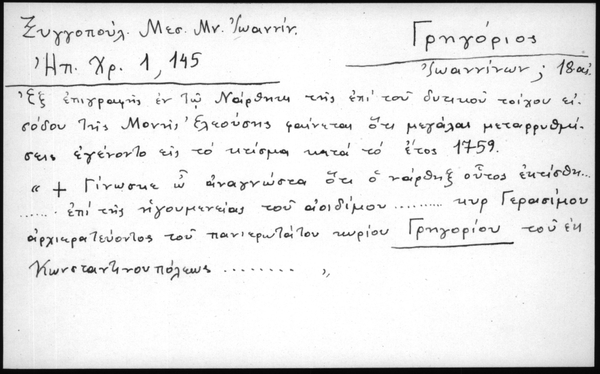 Ξυγγοπούλ. Μεσ. Μν. Ἰωαννίν.
Ἠπ. Χρ. 1, 145
Γρηγόριος
Ἰωαννίνων; 18 αἰ.
Ἐξ ἐπιγραφῆς ἐν τῷ Νάρθηκι τῆς ἐπί τοῦ δυτικοῦ τοίχου εἰ-
σόδου τῆς Μονῆς Ἐλεούσης φαίνεται ὅτι μεγάλαι μεταρρυθμί-
σεις ἐγένοντο εἰς τό κτίσμα κατά τό ἔτος 1759.
" + Γίνωσκε ὦ ἀναγνώστα ὅτι ὁ νάρθηξ οὗτος ἐκτίσθη...
....... ἐπί τῆς ἡγουμενείας τοῦ ἀοιδίμου ......... κυρ Γερασίμου
ἀρχιερατεύοντος τοῦ πανιερωτάτου κυρίου Γρηγορίου τοῦ ἐκ
Κωνσταντινουπόλεως ........ "